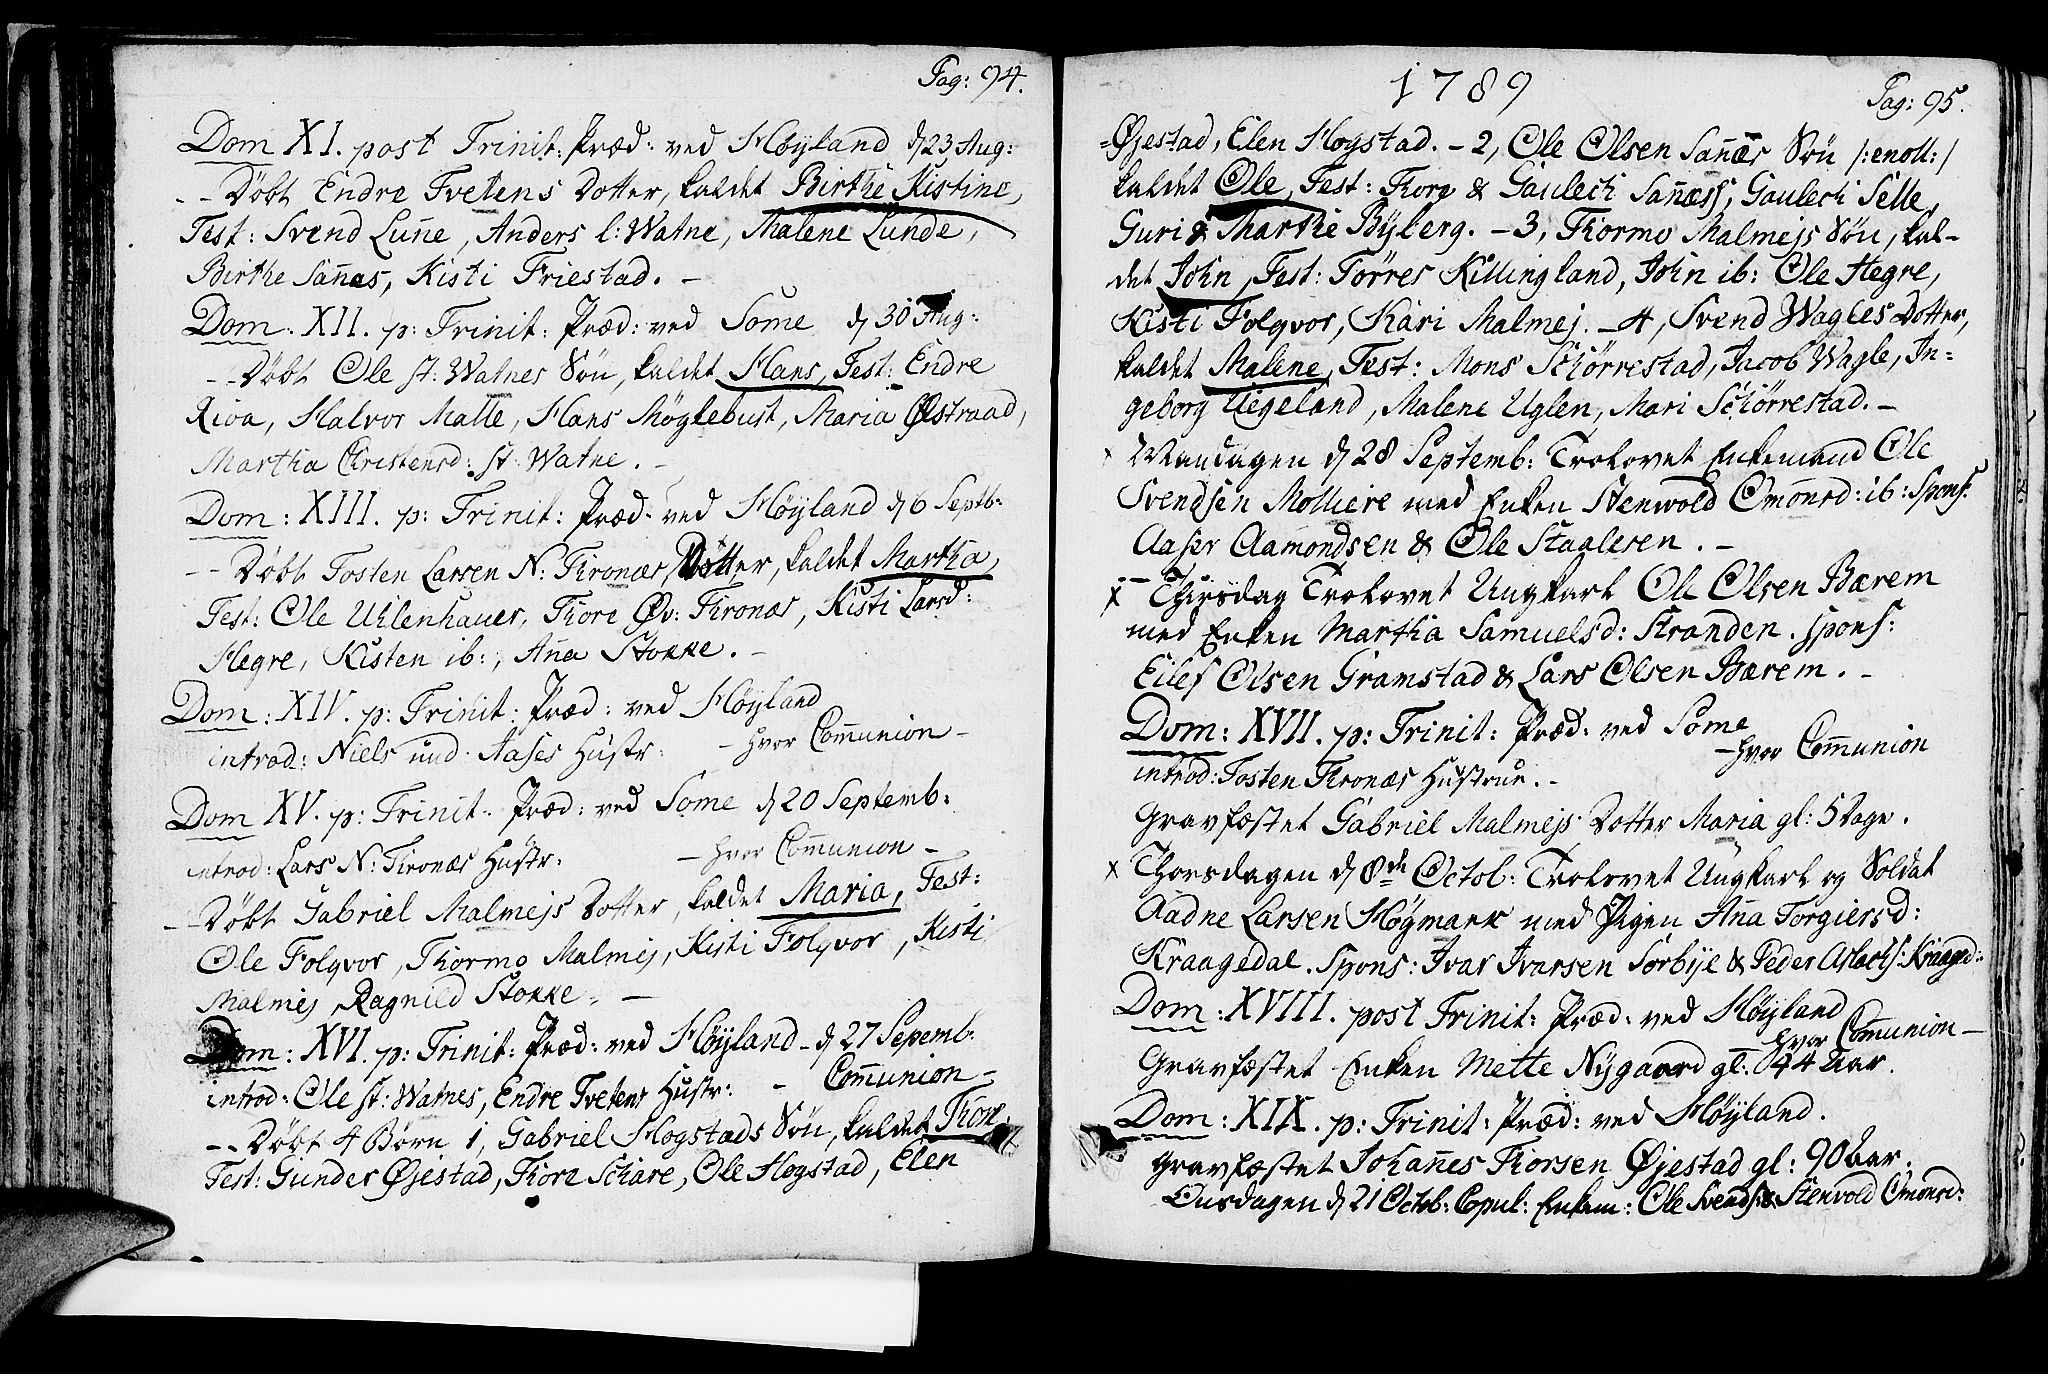 Pag: 94.
Dom XI. post Trinit: Præd: ved Høyland d 23 Aug:
-- Døbt Endre Tvetens Dotter, kaldet Birthe Kistine,
Test: Svend Lune, Anders l: Watne, Malene Lunde,
Birthe Sañæs, Kisti Friestad. -
Dom: XII. p: Trinit: Præd: ved Some d 30 Aug:
-- Døbt Ole st: Watnes Søn, kaldet Hans, Test: Endre
Rioa, Halvor Malle, Hans Møglebust, Maria Østraad,
Martha Christensd: st: Watne. -
Dom: XIII. p: Trinit: Præd: ved Høyland d 6 Septb:
-- Døbt Tosten Larsen N: Thronæs Dotter, kaldet Martha,
Test: Ole Uhlenhauer, Thore Øv: Thronæs, Kisti Larsd:
Hegre, Kisten ib:, Aña Stokke. -
Dom: XIV. p: Trinit: Præd: ved Høyland
introd: Niels und: Aases Hustr: - hvor Comunion -
Dom XV. p: Trinit: Præd: ved Some d 20 Septemb:
introd: Lars N: Thronæs Hustr: - hvor Comunion -
-- Døbt Gabriel Malmejs Dotter, kaldet Maria, Test:
Ole Folqvor, Thormo Malmej, Kisti Folqvor, Kisti
Malmej Ragnild Stokke. -
Dom: XVI. p: Trinit: Præd: ved Høyland - d 27 Sepemb:
introd: Ole st: Watnes, Endre Tvetens Hustr: - Comunion -
-- Døbt 4 Børn 1, Gabriel Hogstads Søn, kaldet Thore
Test: Gunder Øjestad, Thore Schare, Ole Hogstad, Elen
1789
Pag: 95.
=Øjestad, Elen Hogstad. - 2, Ole Olsen Sañæs Søn /:enoll:/
kaldet Ole, Test: Thore & Gaulech Sañæss, Gaulech Selle,
Guri & Marthe Bÿberg. - 3, Thormo Malmejs Søn, kal-
det John, Test: Tørres Killingland, John ib: Ole Hegre,
Kisti Folqvor, Kari Malmej. - 4, Svend Wagles Dotter,
kaldet Malene, Test: Mons Schørrestad, Jacob Wagle, In=
geborg Uegeland, Malene Uglen, Mari Schørrestad. -
x Mandagen d 28 Septemb: Trolovet Enkemand Ole
Svendsen Molliere med Enken Stenwold Omonsd: ib: Spons:
Aaser Aamondsen & Ole Staalesen. -
x Thirsdag Trolovet Ungkarl Ole Olsen Bærem
med Enken Martha Samuelsd: Stranden. spons:
Eilef Olsen Gramstad & Lars Olsen Bærem. -
Dom: XVII. p: Trinit: Præd: ved Some
- hvor Comunion
introd: Tosten Thronæs Hustrue. -
Gravfæstet Gabriel Malmejs Dotter Maria gl: 5 Dage.
x Thorsdagen d 8de Octob: Trolovet Ungkarl og Soldat
Aadne Larsen Høgmark med Pigen Aña Torgiersd:
Kraagedal. Spons: Ivar Ivarsen Sørbÿe & Peder Aslachs: Kraaged:
Dom: XVIII. post Trinit: Præd: ved Høyland
hvor Comunion -
Gravfæstet Enken Mette Nÿgaard gl: 44 Aar.
Dom: XIX. p: Trinit: Præd: ved Høyland.
Gravfæstet Johañes Thorsen Øjestad gl: 90 Aar.
Onsdagen d 21 Octob: Copul: Enkem: Ole Svends: & Stenvold Omonsd: